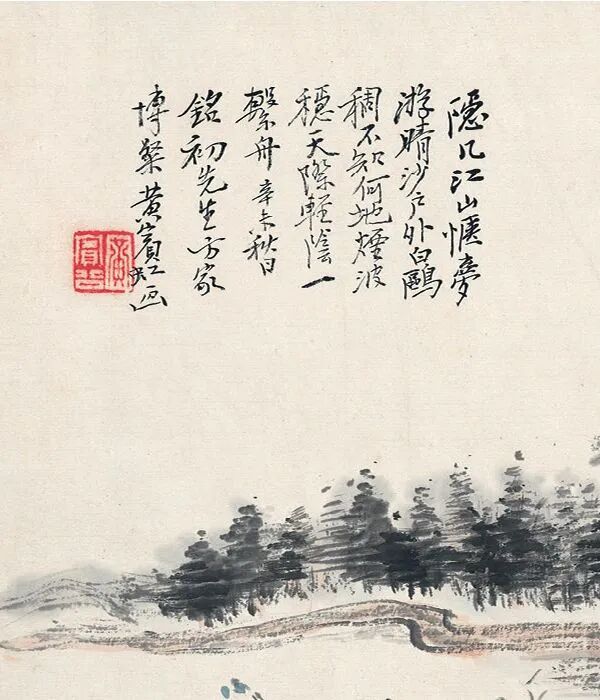 隱几江山愜夢
游晴沙户外白鷗
稠不知何地煙波
穩天際輕陰一
繫舟辛未秋日
銘初先生方家
博粲黃賓虹画